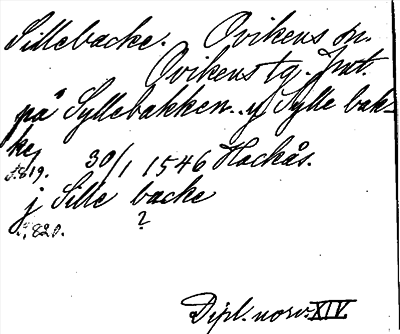 Sillebacke. Ovikens sn.
Ovikens tg. Jmt.
på Syllebakken.. y Sylle bak-
ke,
s. 819. 30/1 1546 Hackås.
j Sille backe
s. 820. ?
Dipl. norv. XIV.